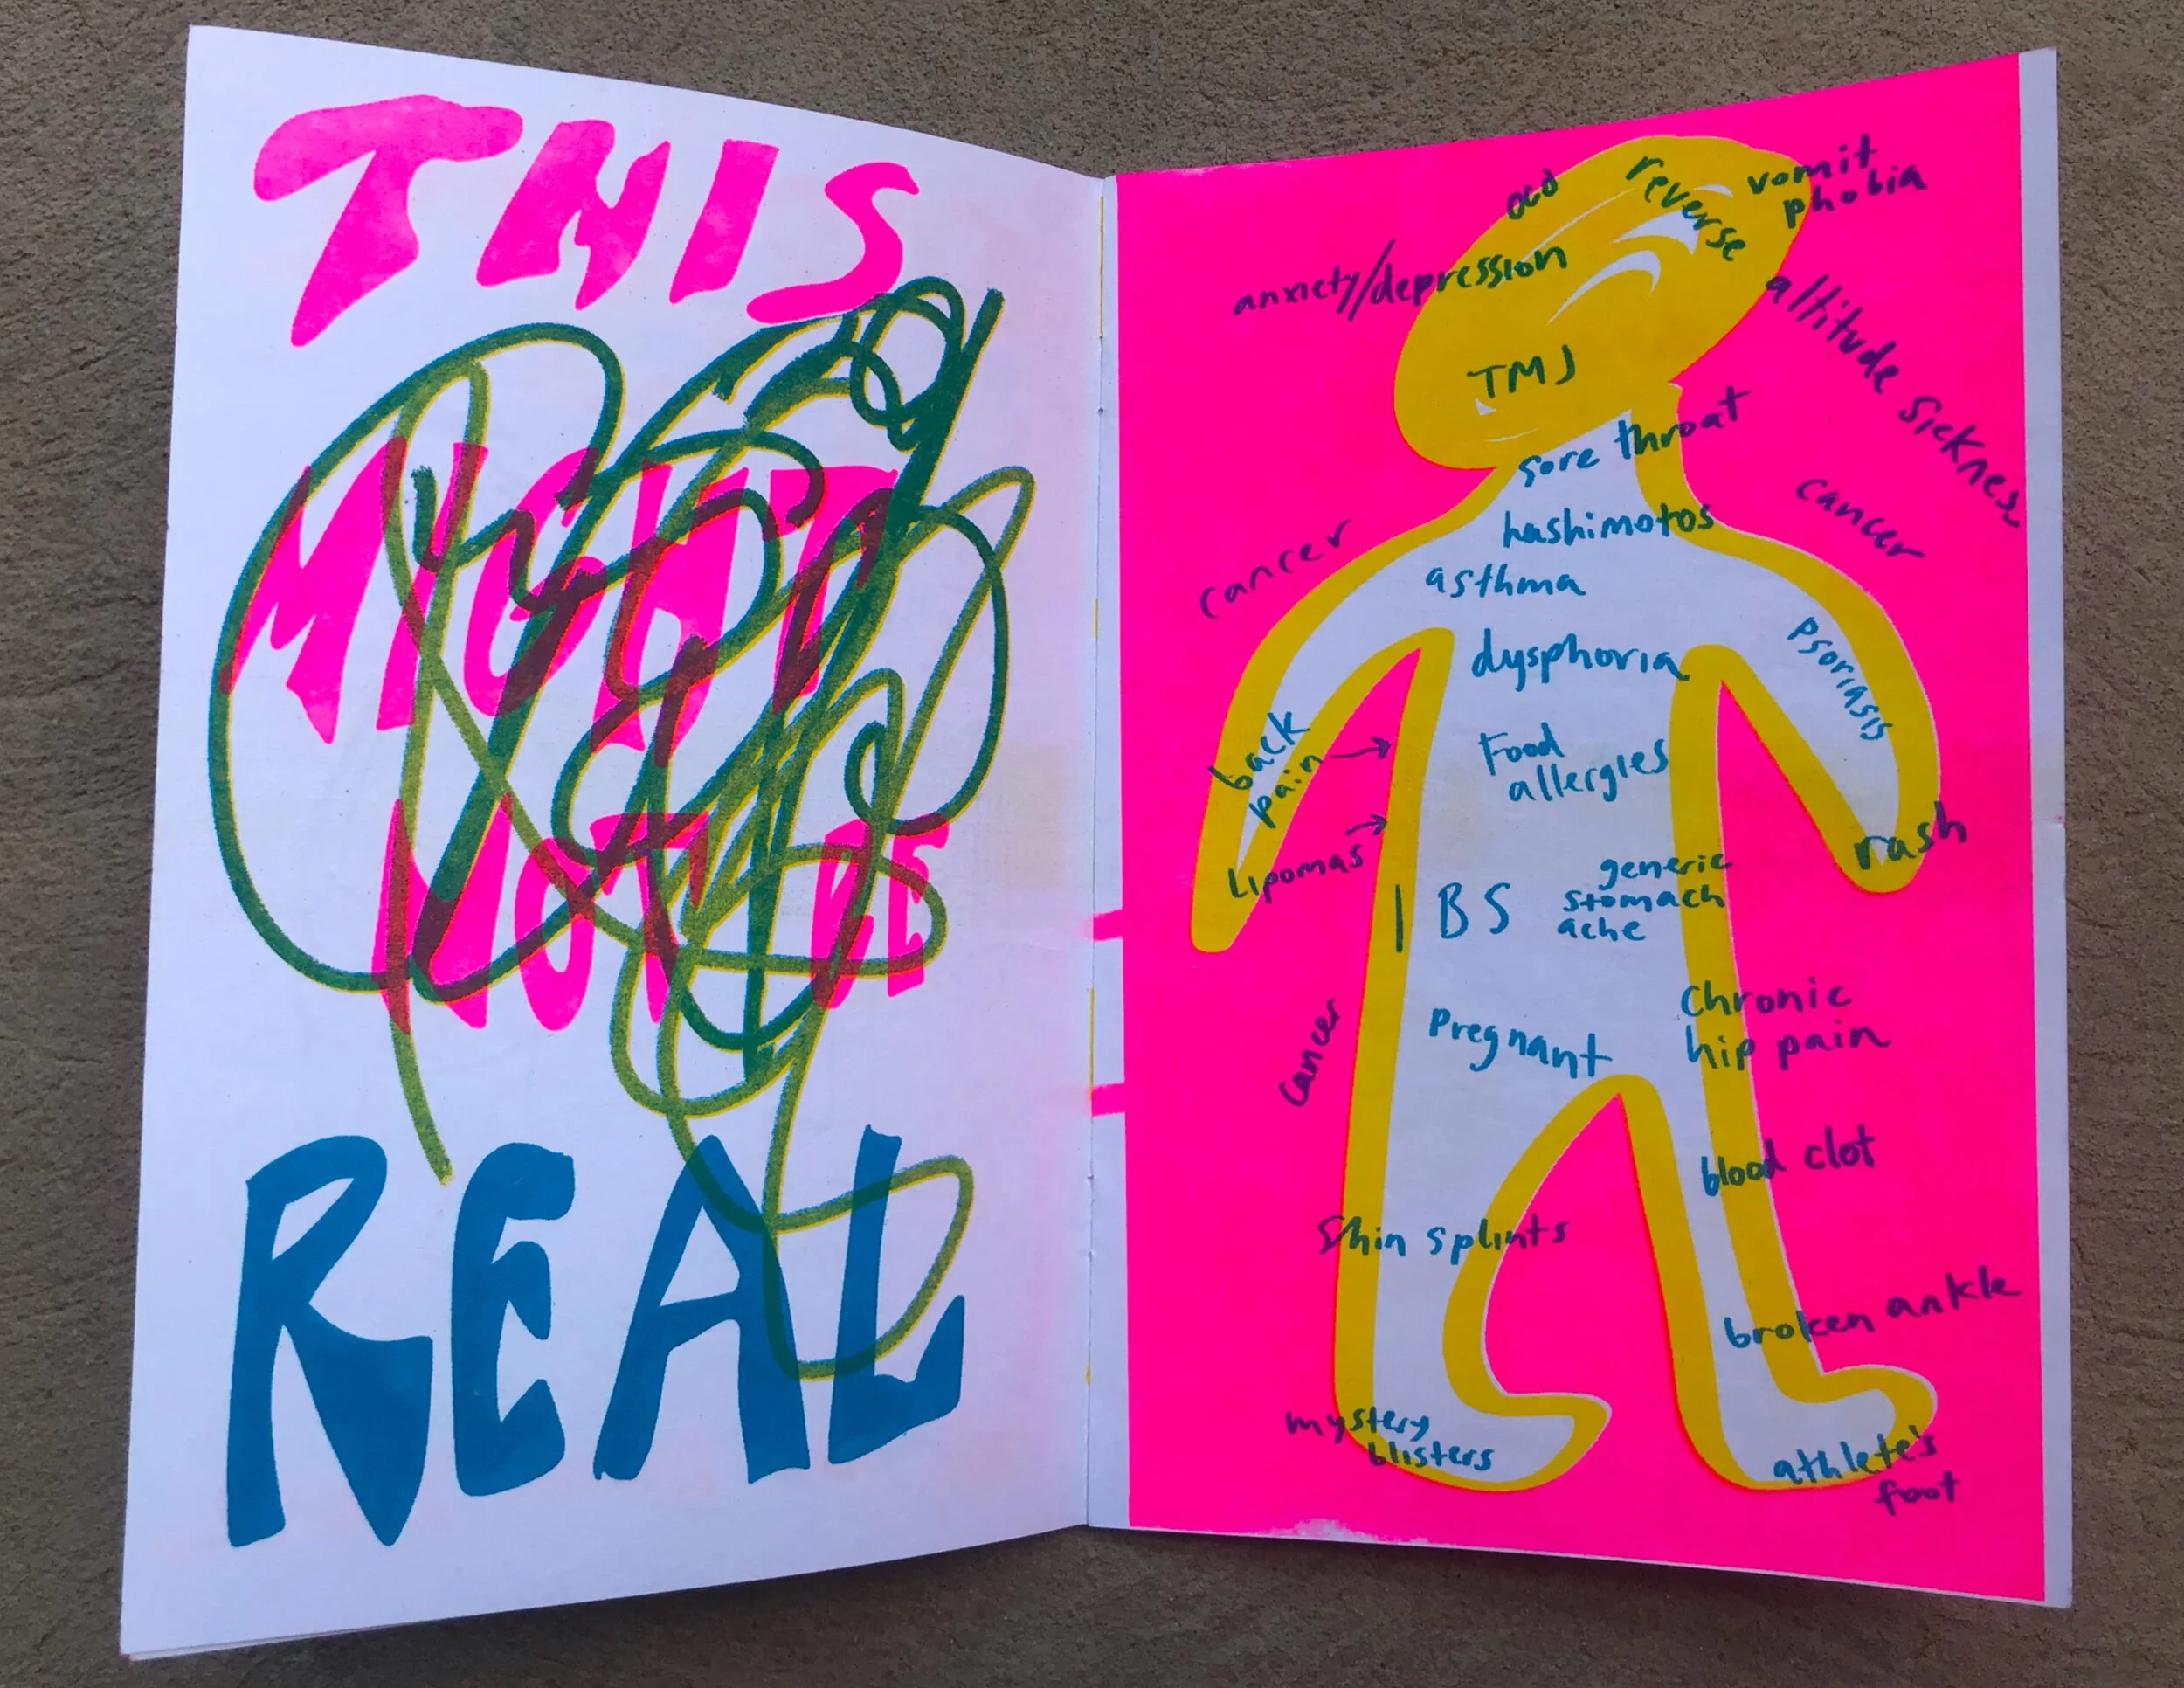 THIS
MIGHT
NOT BE
REAL
ocd
reverse
vomit
phobia
anxiety/depression
altitude sickness
TMJ
sore throat
cancer
hashimotos
cancer
asthma
psoriasis
dysphoria
back
pain →
Food
allergies
Lipomas →
rash
IBS
generic
stomach
ache
cancer
Chronic
hip pain
Pregnant
blood clot
Shin splints
broken ankle
mystery
blisters
athlete's
foot